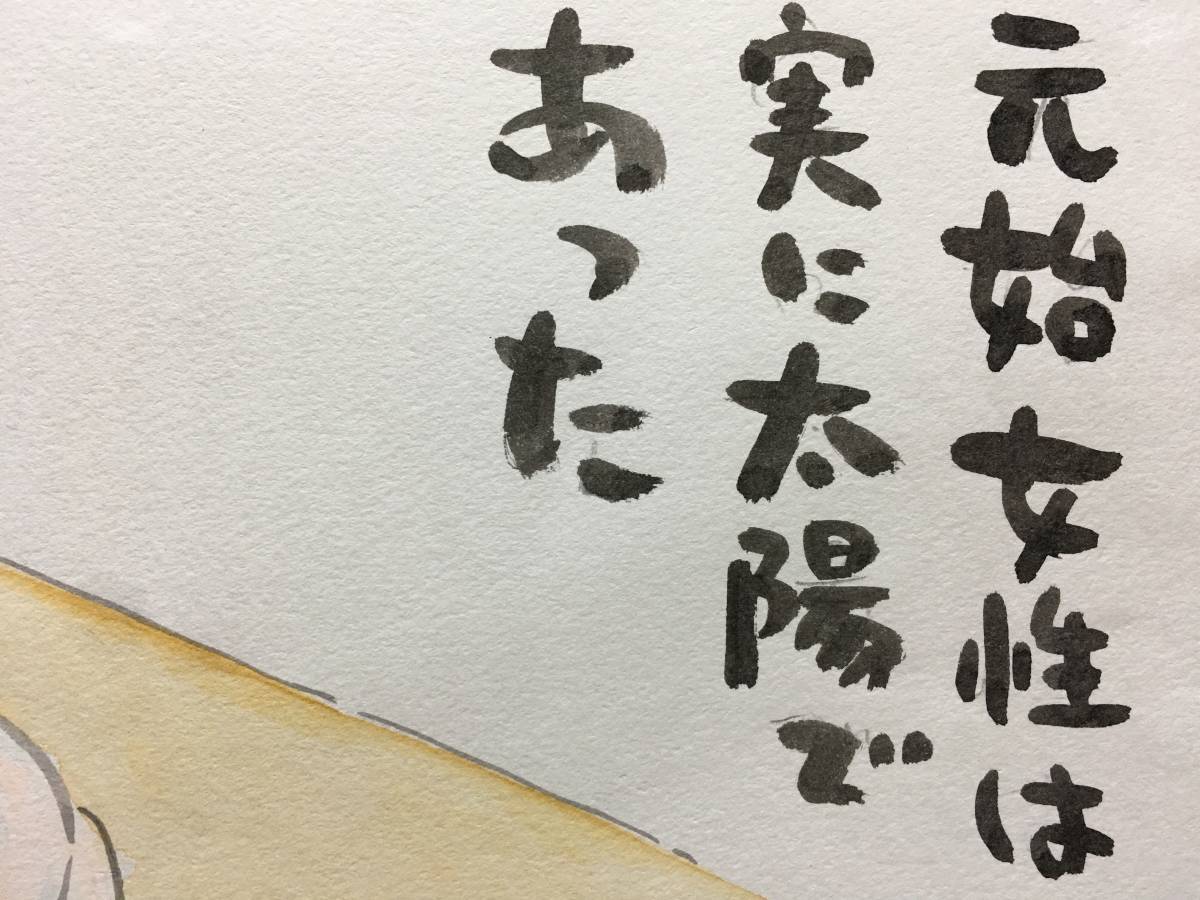 元始 女性は
実に太陽で
あった